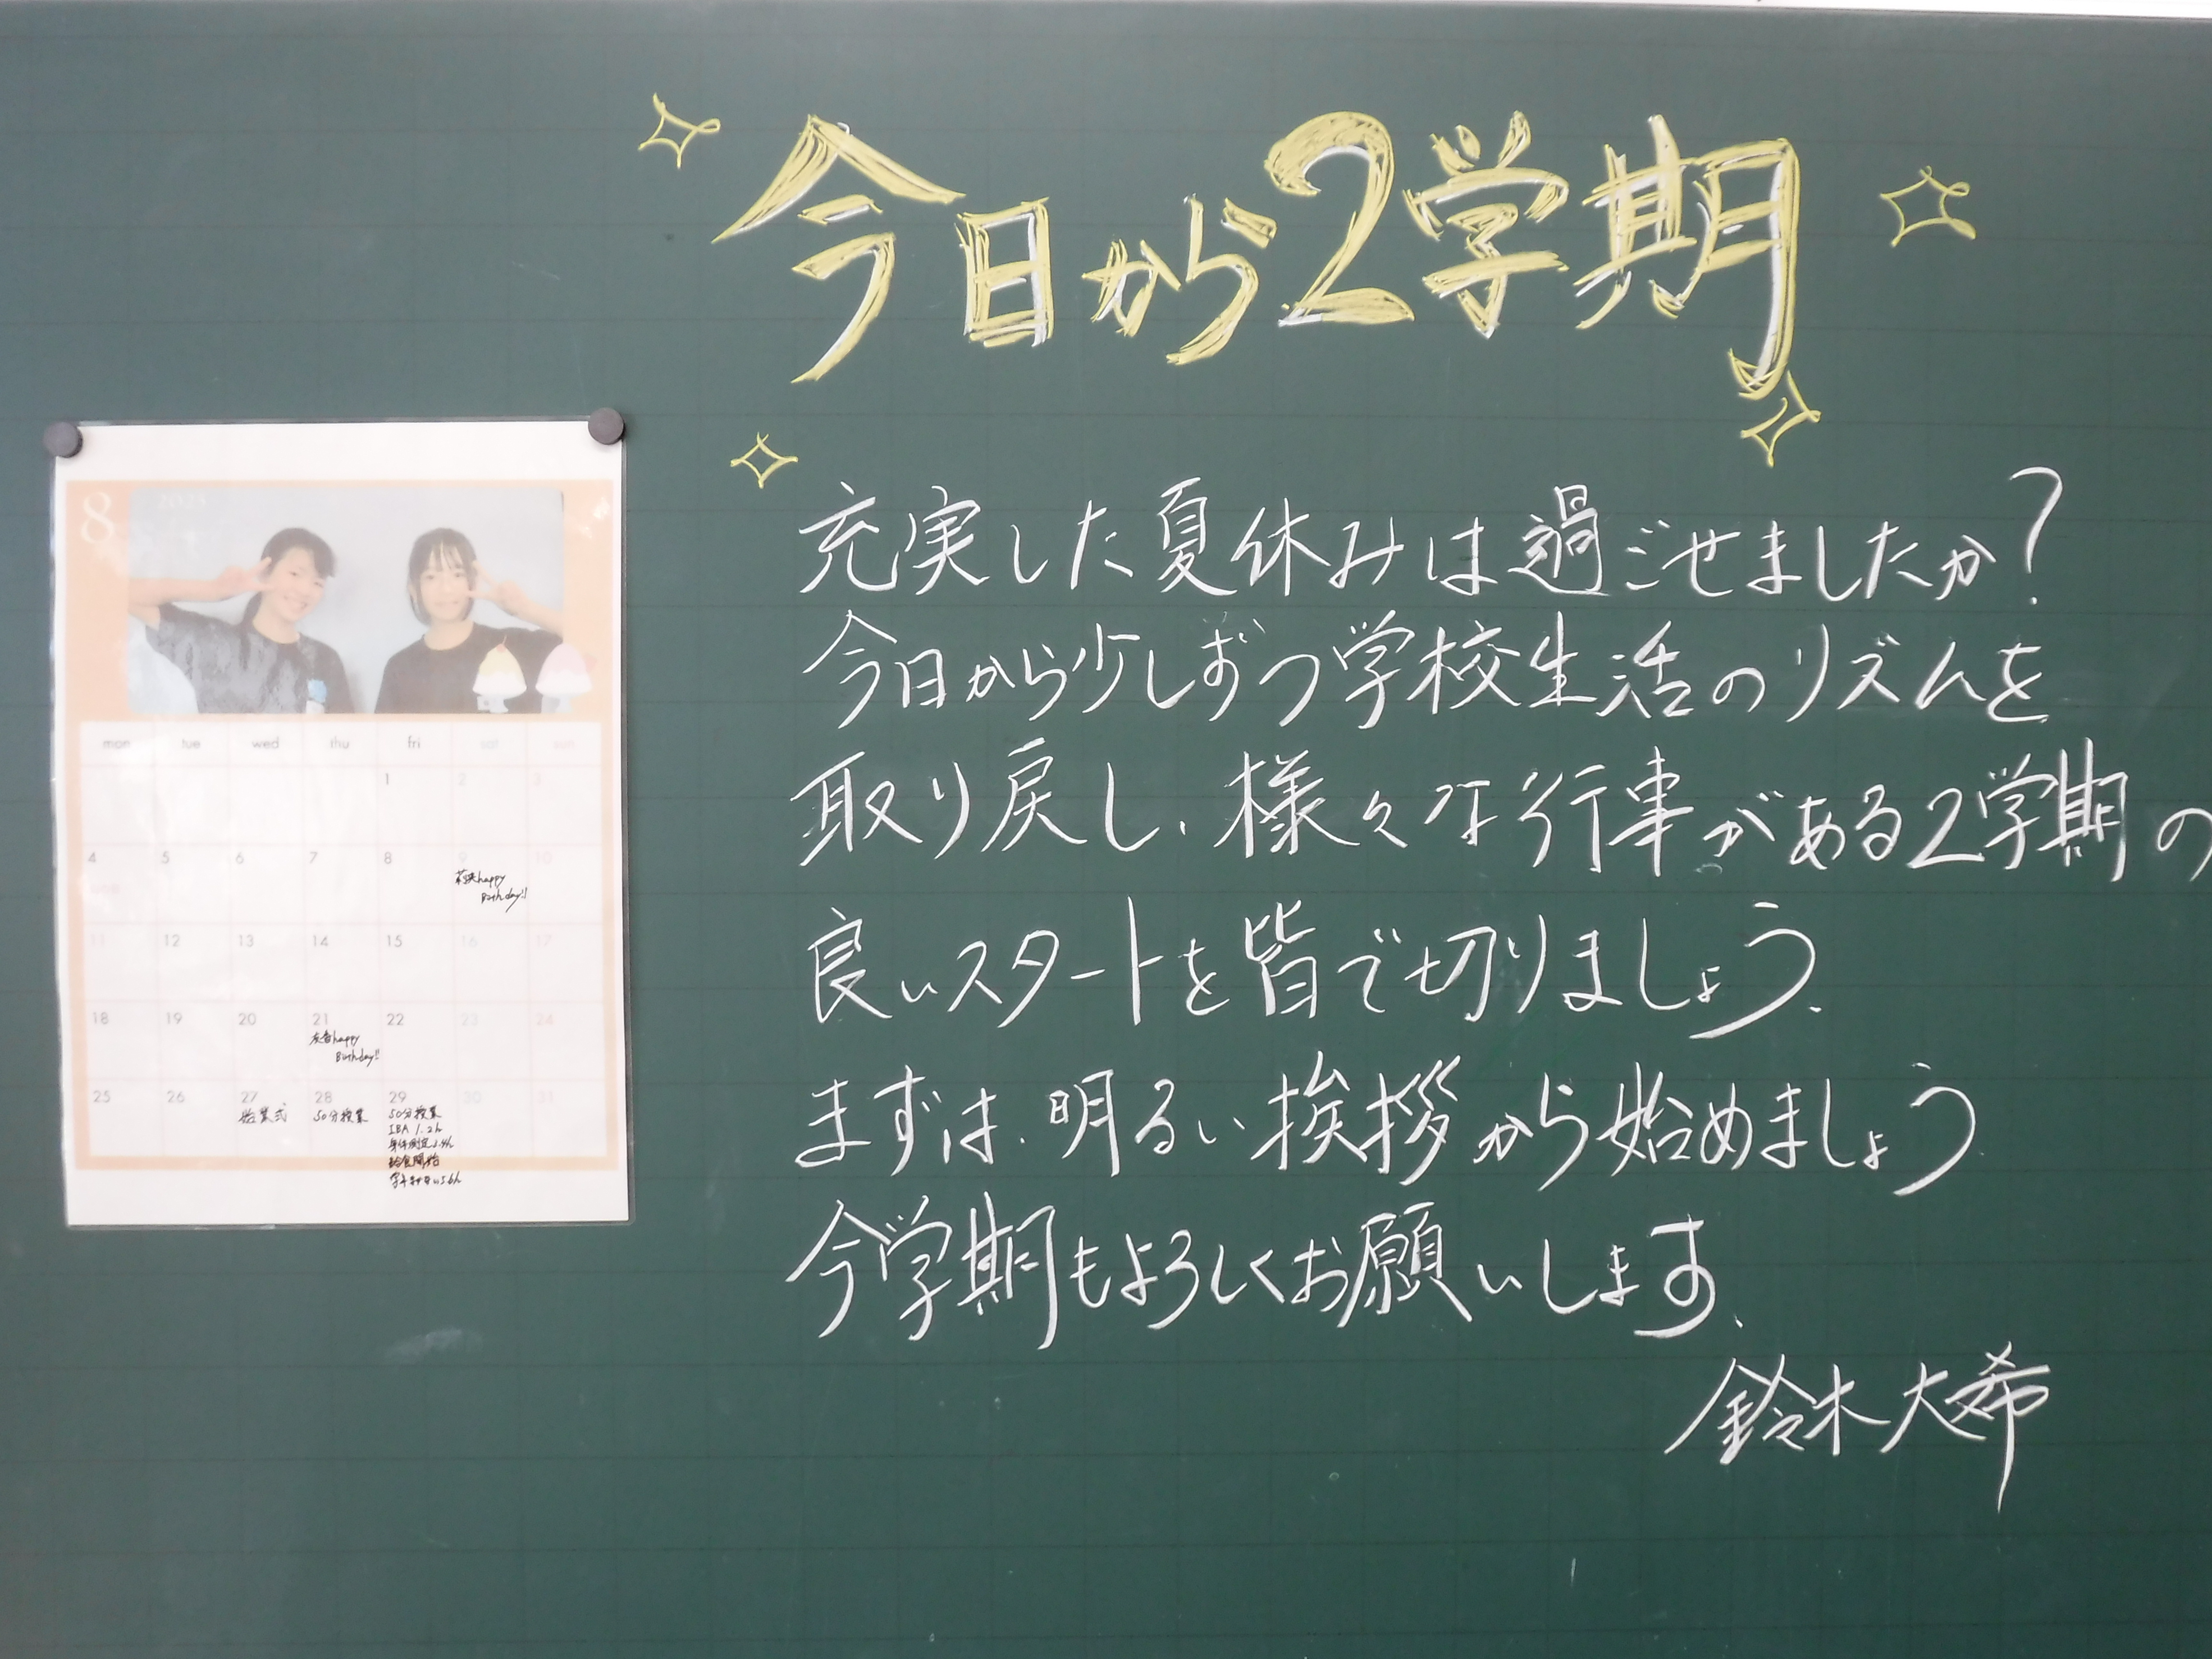 今日から2学期
充実した夏休みは過ごせましたか?
今日から少しずつ学校生活のリズムを
取り戻し、様々な行事がある2学期の
良いスタートを皆で切りましょう。
まずは、明るい挨拶から始めましょう
今学期もよろしくお願いします。
鈴木大希
8 2025
mon tue wed thu fri sat sun
1 2 3
4 5 6 7 8 9 10
happy
Birthday!!
11 12 13 14 15 16 17
18 19 20 21 22 23 24
友香happy
Birthday!!
25 26 27 28 29 30 31
始業式 50分授業 50分授業
IBA 1.2h
身体測定3.4h
給食開始
5.6h